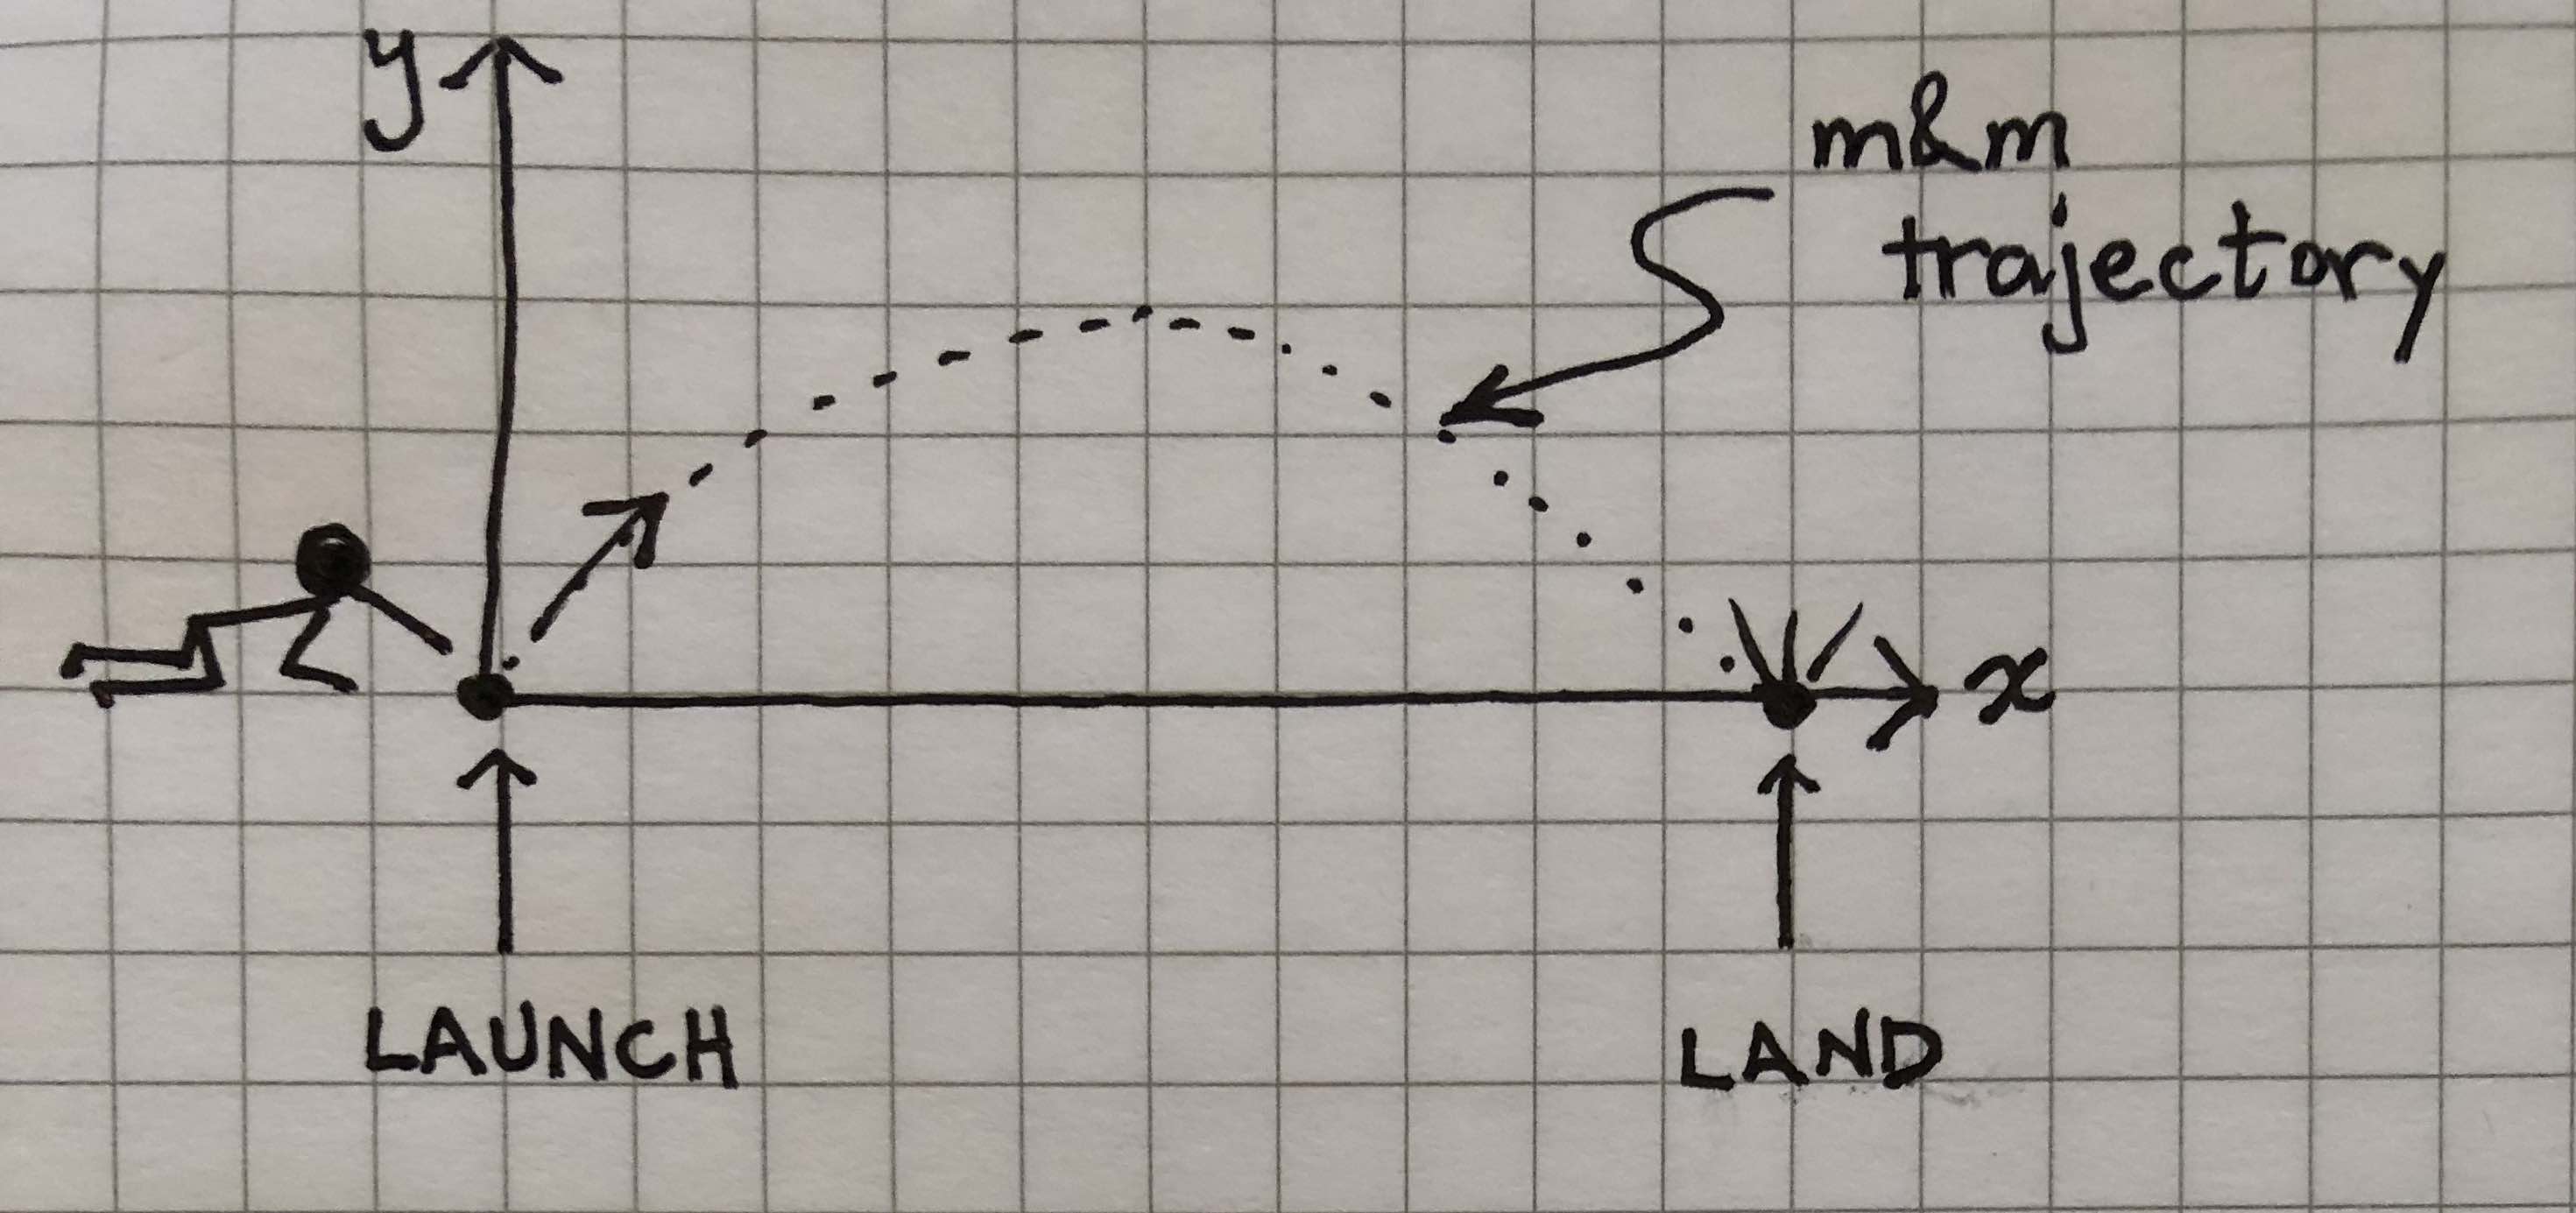 y
m&m
trajectory
x
LAUNCH
LAND